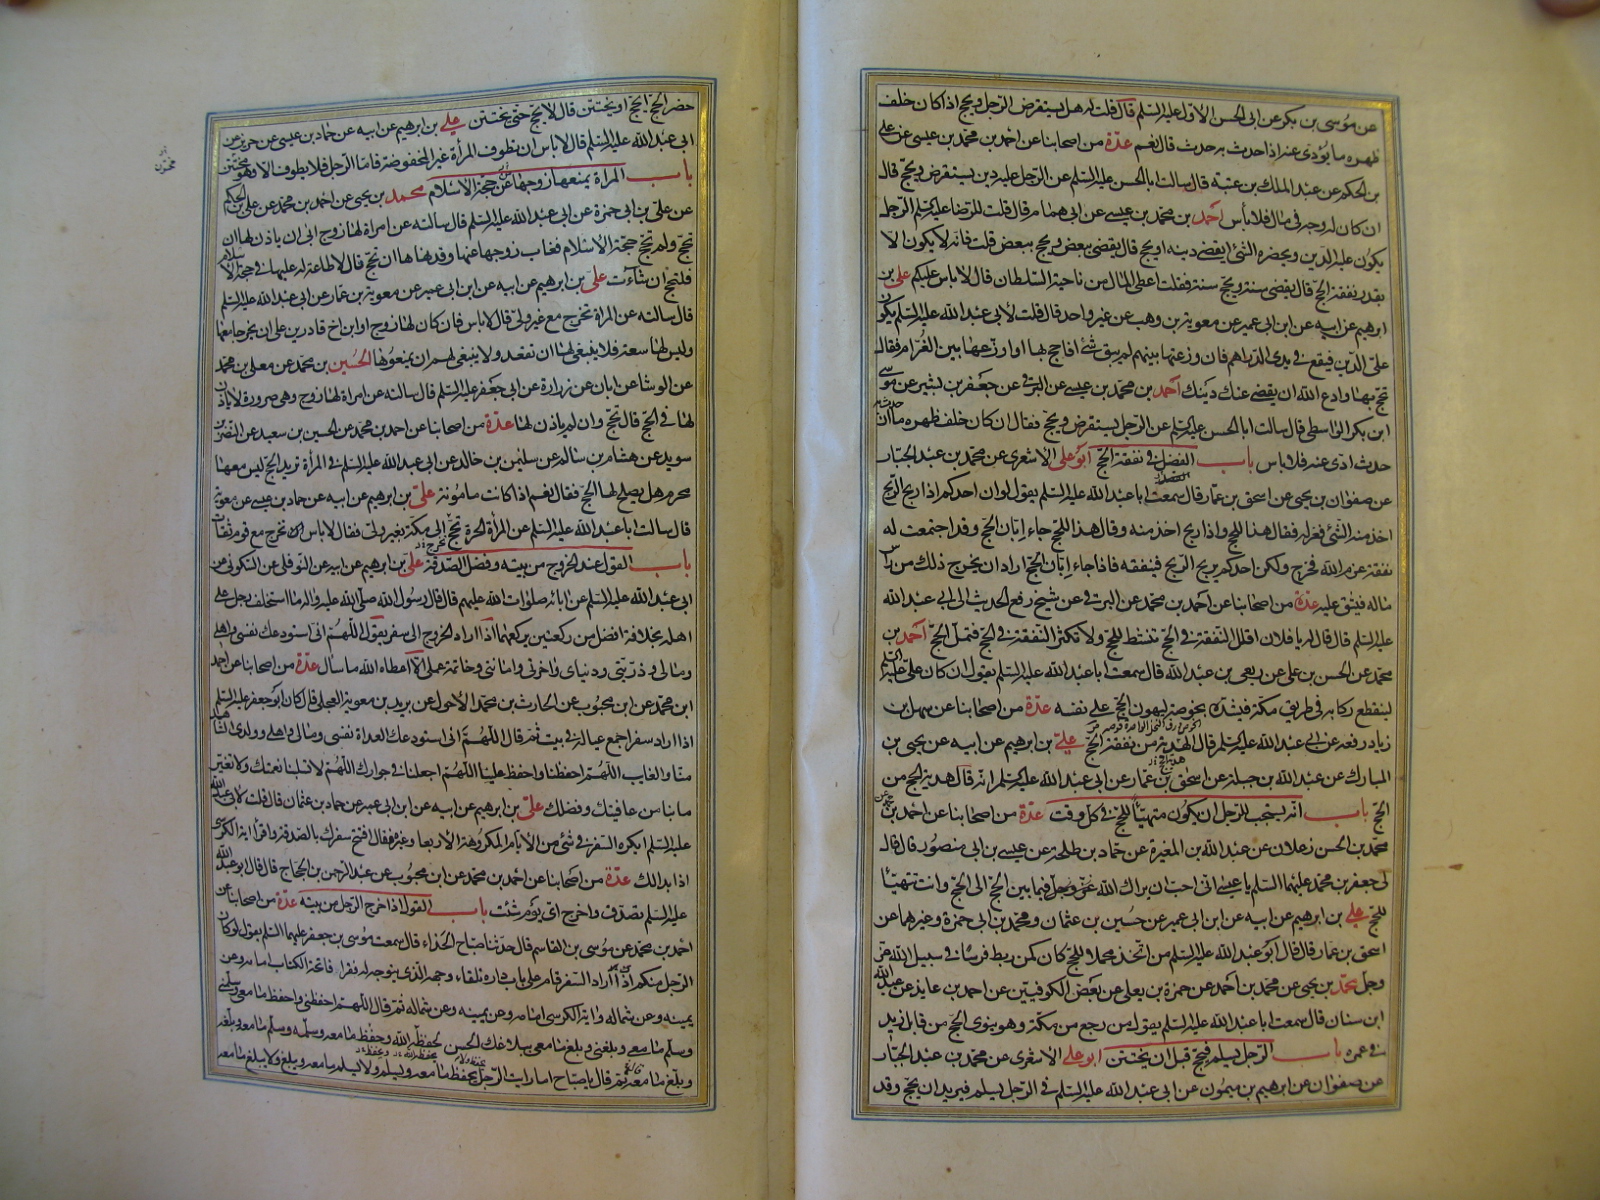 عن موسى بن بكر عن ابى الحسن الاول عليه السلم قال قلت له هل يستقرض الرجل ويحج اذا كان خلف
ظهره ما يؤدى عنه اذا حدث به حدث قال نعم عدة من اصحابنا عن احمد بن محمد بن عيسى عن على
بن الحكم عن عبد الملك بن عتبة قال سالت ابا الحسن عليه السلم عن الرجل عليه دين يستقرض ويحج قال
ان كان له وجه فى مال فلا بأس احمد بن محمد بن عيسى عن ابى همام قال قلت للرضا عليه السلم الرجل
يكون عليه الدين ويحضره الشئ ايقضى دينه او يحج قال يقضى ببعض ويحج ببعض قلت فانه لا يكون الا
بقدر نفقة الحج قال يقضى سنة ويحج سنة فقلت اعطى المال من ناحية السلطان قال لا باس عليكم على بن
ابرهيم عن ابيه عن ابن ابى عمير عن معوية بن وهب عن غير واحد قال قلت لأبى عبد الله عليه السلم يكون
على الدين فيقع فى يدى الدراهم فان وزعتها بينهم لم يبق شئ افاحج بها او اوزعها بين الغرام فقال
تحج بها وادع الله ان يقضى عنك دينك احمد بن محمد بن عيسى عن البرقى عن جعفر بن بشير عن موسى
ابن بكر الواسطى قال سالت ابا الحسن عليه السلم عن الرجل يستقرض ويحج فقال ان كان خلف ظهره ما ان
حدث به حدث ادى عنه فلا باس باب الفضل فى نفقة الحج ابو على الاشعرى عن محمد بن عبد الجبار
عن صفوان بن يحيى عن اسحق بن عمار قال سمعت ابا عبد الله عليه السلم يقول لو ان احدكم اذا ربح الربح
اخذ منه الشئ فعزله فقال هذا للحج واذا ربح اخذ منه وقال هذا للحج جاء ابان الحج وقد اجتمعت له
نفقة عزم الله فخرج ولكن احدكم يربح الربح فينفقه فاذا جاء ابان الحج اراد ان يخرج ذلك من راس
ماله فيشق عليه عدة من اصحابنا عن احمد بن محمد عن البرقى عن شيخ رفع الحديث الى ابى عبد الله
عليه السلم قال قال له يا فلان اقلل النفقة فى الحج تنشط للحج ولا تكثر النفقة فى الحج فتمل الحج احمد بن
محمد عن الحسن بن على عن ربعى بن عبد الله قال سمعت ابا عبد الله عليه السلم يقول ان كان على عليه السلم
لينقطع ركابه فى طريق مكة فيشده بخوصة ليهون الحج على نفسه عدة من اصحابنا عن سهل بن
زياد رفعه عن ابى عبد الله عليه السلم قال الهدية من نفقة الحج على بن ابرهيم عن ابيه عن يحيى بن
المبارك عن عبد الله بن جبلة عن اسحق بن عمار عن ابى عبد الله عليه السلم انه قال هدية الحج من
الحج باب انه يستحب للرجل ان يكون متهيئا للحج فى كل وقت عدة من اصحابنا عن احمد بن
محمد بن الحسن زعلان عن عبد الله بن المغيرة عن حماد بن طلحة عن عيسى بن ابى منصور قال قال
لى جعفر بن محمد عليهما السلم يا عيسى انى احب ان يراك الله عز وجل فيما بين الحج الى الحج وانت تتهيأ
للحج على بن ابرهيم عن ابيه عن ابن ابى عمير عن حسين بن عثمان ومحمد بن ابى حمزة وغيرهما عن
اسحق بن عمار قال قال ابو عبد الله عليه السلم من اتخذ محملا للحج كان كمن ربط فرسا فى سبيل الله عز
وجل محمد بن يحيى عن محمد بن احمد عن حمزة بن يعلى عن بعض الكوفيين عن احمد بن عايذ عن عبد الله
ابن سنان قال سمعت ابا عبد الله عليه السلم يقول من رجع من مكة وهو ينوى الحج من قابل زيد
فى عمره باب الرجل يسلم فيحج قبل ان يختتن ابو على الاشعرى عن محمد بن عبد الجبار
عن صفوان عن ابرهيم بن ميمون عن ابى عبد الله عليه السلم فى الرجل يسلم فيريد ان يحج وقد
حضر الحج ايحج او يختتن قال لا يحج حتى يختتن على بن ابرهيم عن ابيه عن حماد بن عيسى عن حريز عن
ابى عبد الله عليه السلم قال لا باس ان تطوف المرأة غير المخفوضة فاما الرجل فلا يطوف الا وهو مختتن
باب المراة يمنعها زوجها عن حجة الاسلام محمد بن يحيى عن احمد بن محمد عن على بن الحكم
عن على بن ابى حمزة عن ابى عبد الله عليه السلم قال سالته عن امراة لها زوج ابى ان ياذن لها ان
تحج ولم تحج حجة الاسلام فغاب زوجها عنها وقد نهاها ان تحج قال لا طاعة له عليها فى حجة الاسلام
فلتحج ان شاءت على بن ابرهيم عن ابيه عن ابن ابى عمير عن معوية بن عمار عن ابى عبد الله عليه السلم
قال سالته عن المراة تخرج مع غير ولى قال لا باس فان كان لها زوج او ابن اخ قادرين على ان يخرجا معها
وليس لها سعة فلا ينبغى لها ان تقعد ولا ينبغى لهم ان يمنعوها الحسين بن محمد عن معلى بن محمد
عن الوشا عن ابان عن زرارة عن ابى جعفر عليه السلم قال سالته عن امراة لها زوج وهى صرورة لا ياذن
لها فى الحج قال تحج وان لم ياذن لها عدة من اصحابنا عن احمد بن محمد عن الحسين بن سعيد عن النضر بن
سويد عن هشام بن سالم عن سليمن بن خالد عن ابى عبد الله عليه السلم فى المرأة تريد الحج ليس معها
محرم هل يصلح لها الحج فقال نعم اذا كانت مامونة على بن ابرهيم عن ابيه عن حماد بن عيسى عن معوية
قال سالت ابا عبد الله عليه السلم عن المرأة الحرة تحج الى مكة بغير ولى فقال لا باس تخرج مع قوم ثقات
باب القول عند الخروج من بيته وفضل الصدقة على بن ابرهيم عن ابيه عن النوفلى عن السكونى عن
ابى عبد الله عليه السلم عن ابائه صلوات الله عليهم قال قال رسول الله صلى الله عليه واله ما استخلف رجل على
اهله بخلافة افضل من ركعتين يركعهما اذا اراد الخروج الى سفر يقول اللهم انى استودعك نفسى واهلى
ومالى وذريتى ودنياى واخرتى وامانتى وخاتمة عملى الا اعطاه الله ما سال عدة من اصحابنا عن احمد
ابن محمد عن ابن محبوب عن الحارث بن محمد الاحول عن بريد بن معوية العجلى قال كان ابو جعفر عليه السلم
اذا اراد سفرا جمع عياله فى بيت ثم قال اللهم انى استودعك الغداة نفسى ومالى واهلى وولدى الشاهد
منا والغايب اللهم احفظنا واحفظ علينا اللهم اجعلنا فى جوارك اللهم لا تسلبنا نعمتك ولا تغير
ما بنا من عافيتك وفضلك على بن ابرهيم عن ابيه عن ابن ابى عمير عن حماد بن عثمان قال قلت لابى عبد الله
عليه السلم ايكره السفر فى شئ من الايام المكروهة الاربعا وغيره فقال افتتح سفرك بالصدقة واقرا اية الكرسى
اذا بدالك عدة من اصحابنا عن احمد بن محمد عن ابن محبوب عن عبد الرحمن بن الحجاج قال قال ابو عبد الله
عليه السلم تصدق واخرج اى يوم شئت باب القول اذا خرج الرجل من بيته عدة من اصحابنا عن
احمد بن محمد عن موسى بن القاسم قال حدثنا صباح الحذاء قال سمعت موسى بن جعفر عليهما السلم يقول لو كان
الرجل منكم اذا اراد السفر قام على باب داره تلقاء وجهه الذى يتوجه له فقرا فاتحة الكتاب امامه وعن
يمينه وعن شماله واية الكرسى امامه وعن يمينه وعن شماله ثم قال اللهم احفظنى واحفظ ما معى وسلمنى
وسلم ما معى وبلغنى وبلغ ما معى ببلاغك الحسن لحفظه الله وحفظ ما معه وسلمه وسلم ما معه وبلغه
وبلغ ما معه ثم قال يا صباح اما رايت الرجل يحفظ ولا يحفظ ما معه ويسلم ولا يسلم ما معه ويبلغ ولا يبلغ ما معه